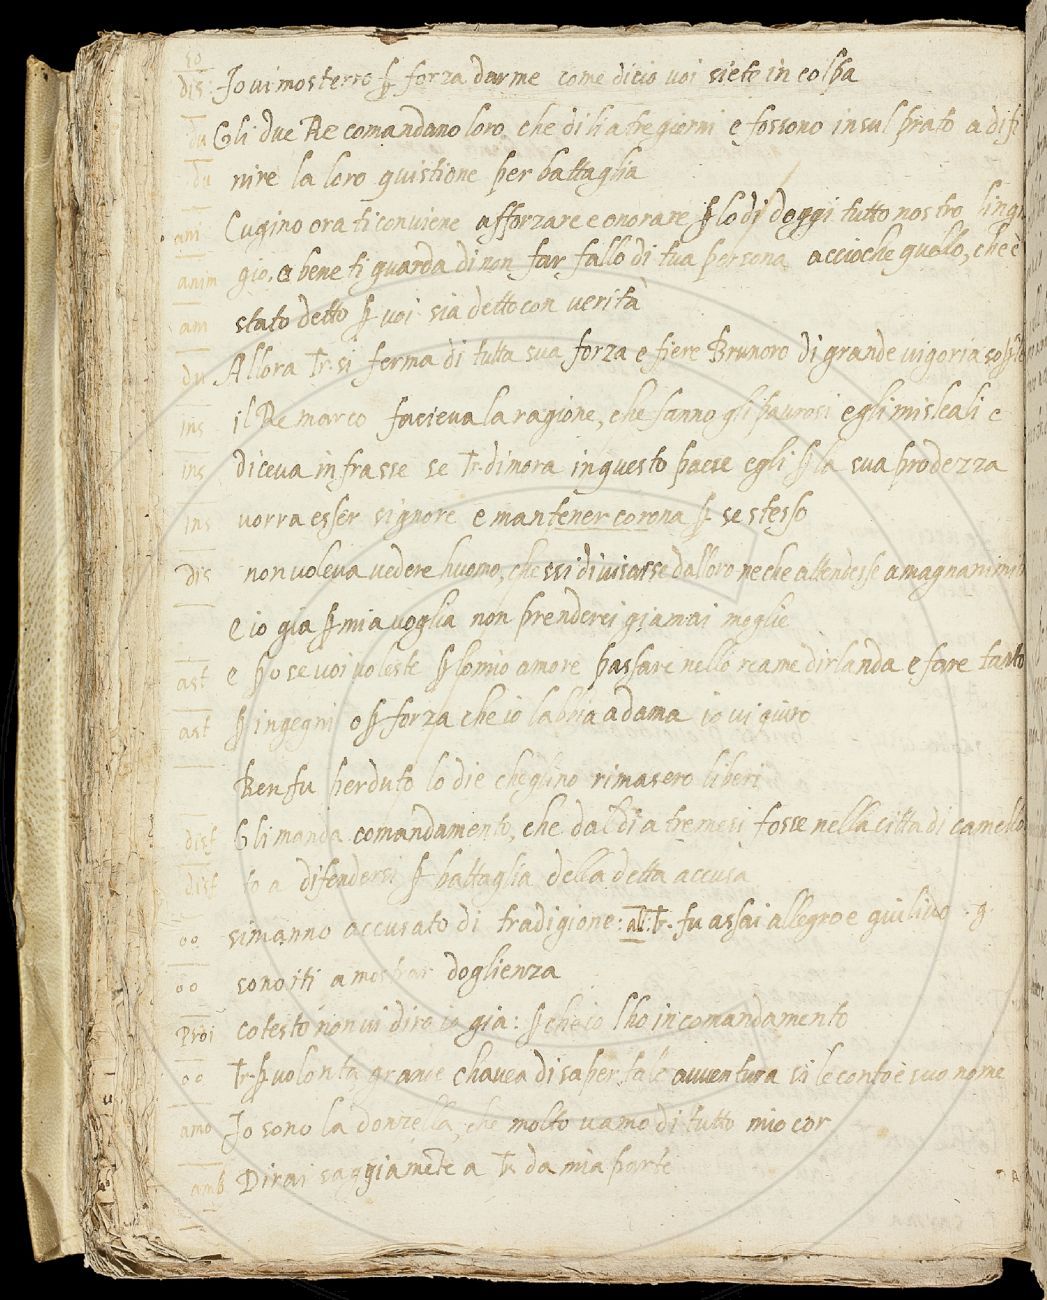 50
dis Jo vi mosterro ꝑ forza darme come dicio voi siete in colpa
du Gli due Re comandano loro, che di li a tre giorni e fossono in sul prato a difi
du nire la loro quistione per battaglia
am Cugino ora ti conviene afforzare e onorare ꝑ lo di doggi tutto nostro
anim gio. e bene ti guarda di non far fallo di tua persona accioche quello, che è
am stato detto ꝑ voi sia detto con verità
du Allora Tr. si ferma di tutta sua forza e fiere Brunoro di grande vigoria
ins il Re marco facieva la ragione, che fanno gli paurosi e gli misleali e
ins diceva infrasse se Tr. dimora in questo paese egli ꝑ la sua prodezza
ins vorra esser signore e mantener corona ꝑ se stesso
dis non voleva vedere huomo, che ssi divisasse dalloro ne che attendesse a magnanimi
e io gia ꝑ mia voglia non prenderei giamai moglie
ast e ꝑo se voi voleste ꝑ lo mio amore passare nello reame dirlanda e fare tanto
ast ꝑ ingegni o ꝑ forza che io labbia a dama io vi giuro
Ben fu perduto lo die cheglino rimasero liberi
disf Gli manda comandamento, che dal di a tre mesi fosse nella citta di camello
disf to a difendersi ꝑ battaglia della detta accusa
oo simanno accusato di tradigione: all. Tr. fu assai allegro e giulivo. g.
oo sono iti a mostrar doglienza
proi cotesto non vi diro io gia: ꝑ che io lho in comandamento
oo Tr. ꝑ volonta grande chavea di saper tale avventura si le conto è suo nome
amo Jo sono la donzella, che molto vamo di tutto mio cor
amb Dirai saggiamete a Tr. da mia parte